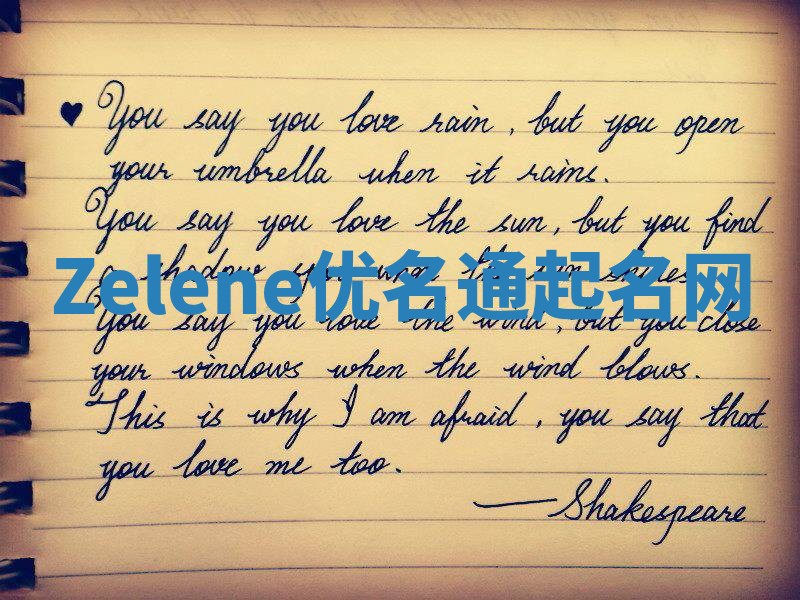 ♥ You say you love rain, but you open
your umbrella when it rains.
You say you love the sun, but you find
a shadow spot when the sun shines.
Zelene优名通起名网
You say you love the wind, but you close
your windows when the wind blows.
This is why I am afraid, you say that
you love me too.
—Shakespeare